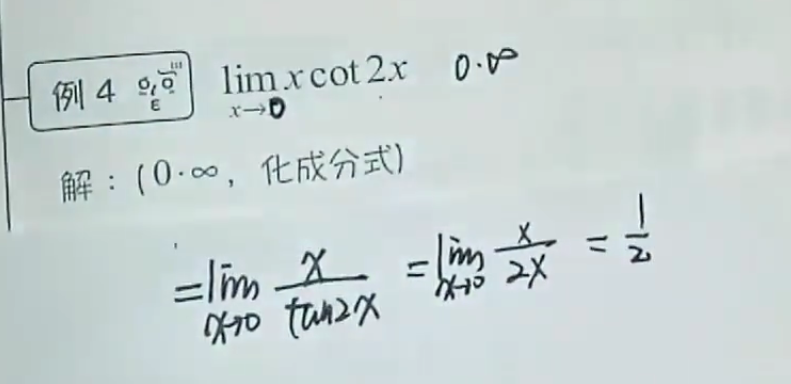 例 4 lim x→0 x cot 2x 0·∞
解：(0·∞，化成分式)
=lim x→0 x/tan2x =lim x→0 x/2x = 1/2